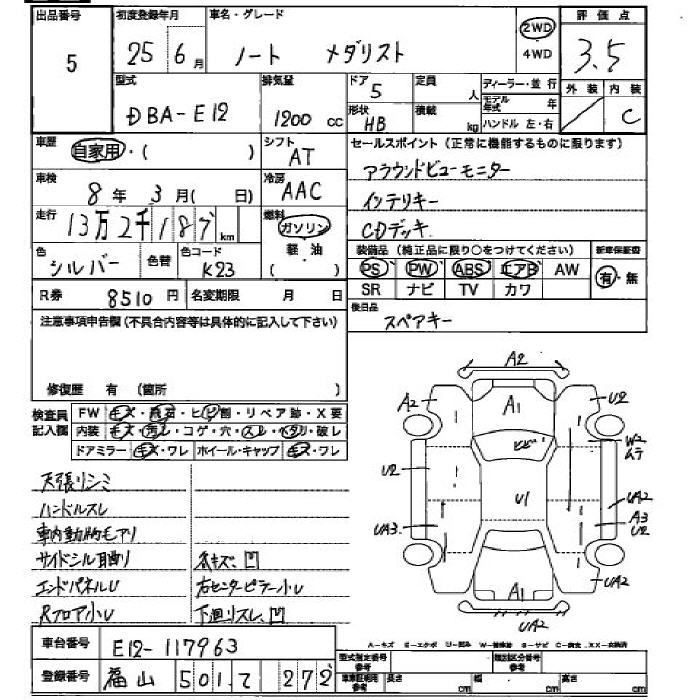 出品番号 初度登録年月 車名・グレード 評価点
5 25年6月 ノート メダリスト 2WD 4WD 3.5
型式 排気量 ドア 定員 ディーラー・並行 外装 内装
DBA-E12 1200cc 5 人 モデル年式 年 C
形状 積載 ハンドル 左・右
HB kg
車歴 シフト セールスポイント(正常に機能するものに限ります)
自家用・( ) AT アラウンドビューモニター
車検 冷房
8年3月( 日) AAC インテリキー
走行 燃料
13万2千187km ガソリン CDデッキ
軽・油
( )
色 色替 色コード 装備品(純正品に限り○をつけてください) 新車保証書
シルバー K23 PS PW ABS エアB AW 有・無
SR ナビ TV カワ
R券 8510円 名変期限 月 日 後日品
スペアキー
注意事項申告欄(不具合内容等は具体的に記入して下さい)
修復歴 有 (箇所 )
検査員記入欄 FW キズ・飛石・ヒビ割・リペア跡・X要
内装 キズ・汚レ・コゲ・穴・スレ・ヘタリ・破レ
ドアミラー キズ・ワレ ホイール・キャップ キズ・ワレ
天張リシミ
ハンドルスレ
車内動物毛アリ
サイドシル凹 爪キズ、凹
エンドパネルU 右センターピラー小U
Rフロア小U 下廻リスレ、凹
A2
A2 A1 U2
ヒビ W2
ムラ
U2 U1 UA2
UA3 A3
U2
A1 UA2
UA2
A-キズ E-エクボ U-凹み W-補修跡 S-サビ C-腐食 XX-交換済
車台番号 E12-117963
登録番号 福山 501 て 272
型式指定番号 参考 類別区分番号 参考
車車証明用 参考 長さ cm 幅 cm 高さ cm